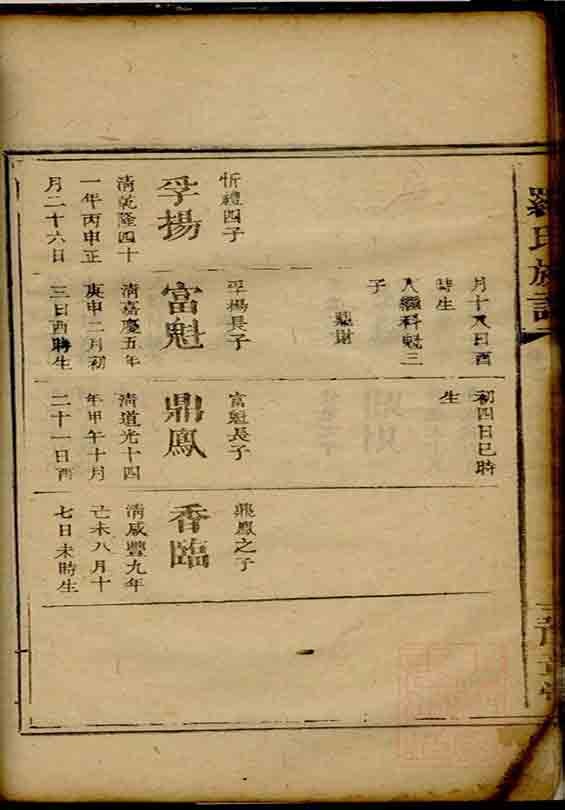 羅氏族譜
忻禮四子
孚揚
清乾隆四十
一年丙申正
月二十六日
月十八日酉
時生
入繼科魁三
子
鼎財
孚揚長子
富魁
清嘉慶五年
庚申二月初
三日酉時生
初四日巳時
生
富魁長子
鼎鳳
清道光十四
年甲午十月
二十一日酉
鼎鳳之子
香臨
清咸豐九年
己未八月十
七日未時生